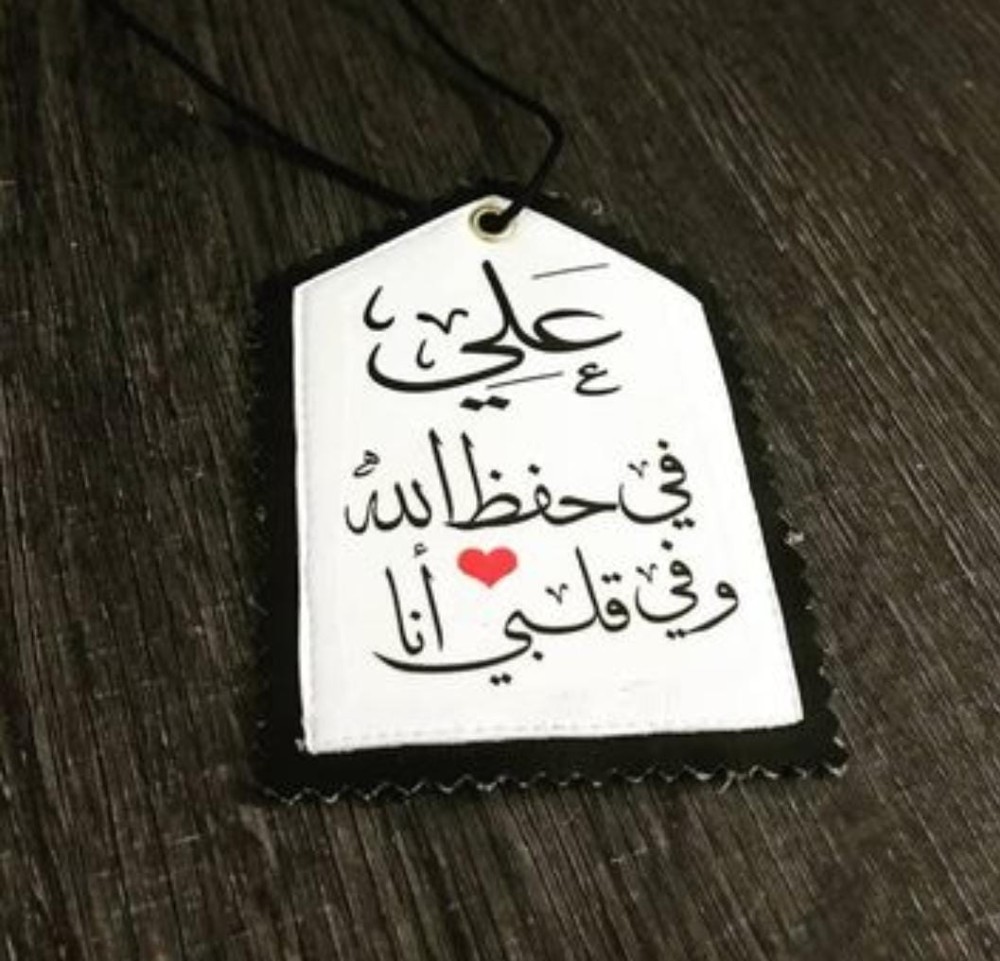 عَلِي
في حفظ الله
وفي قلبي أنا